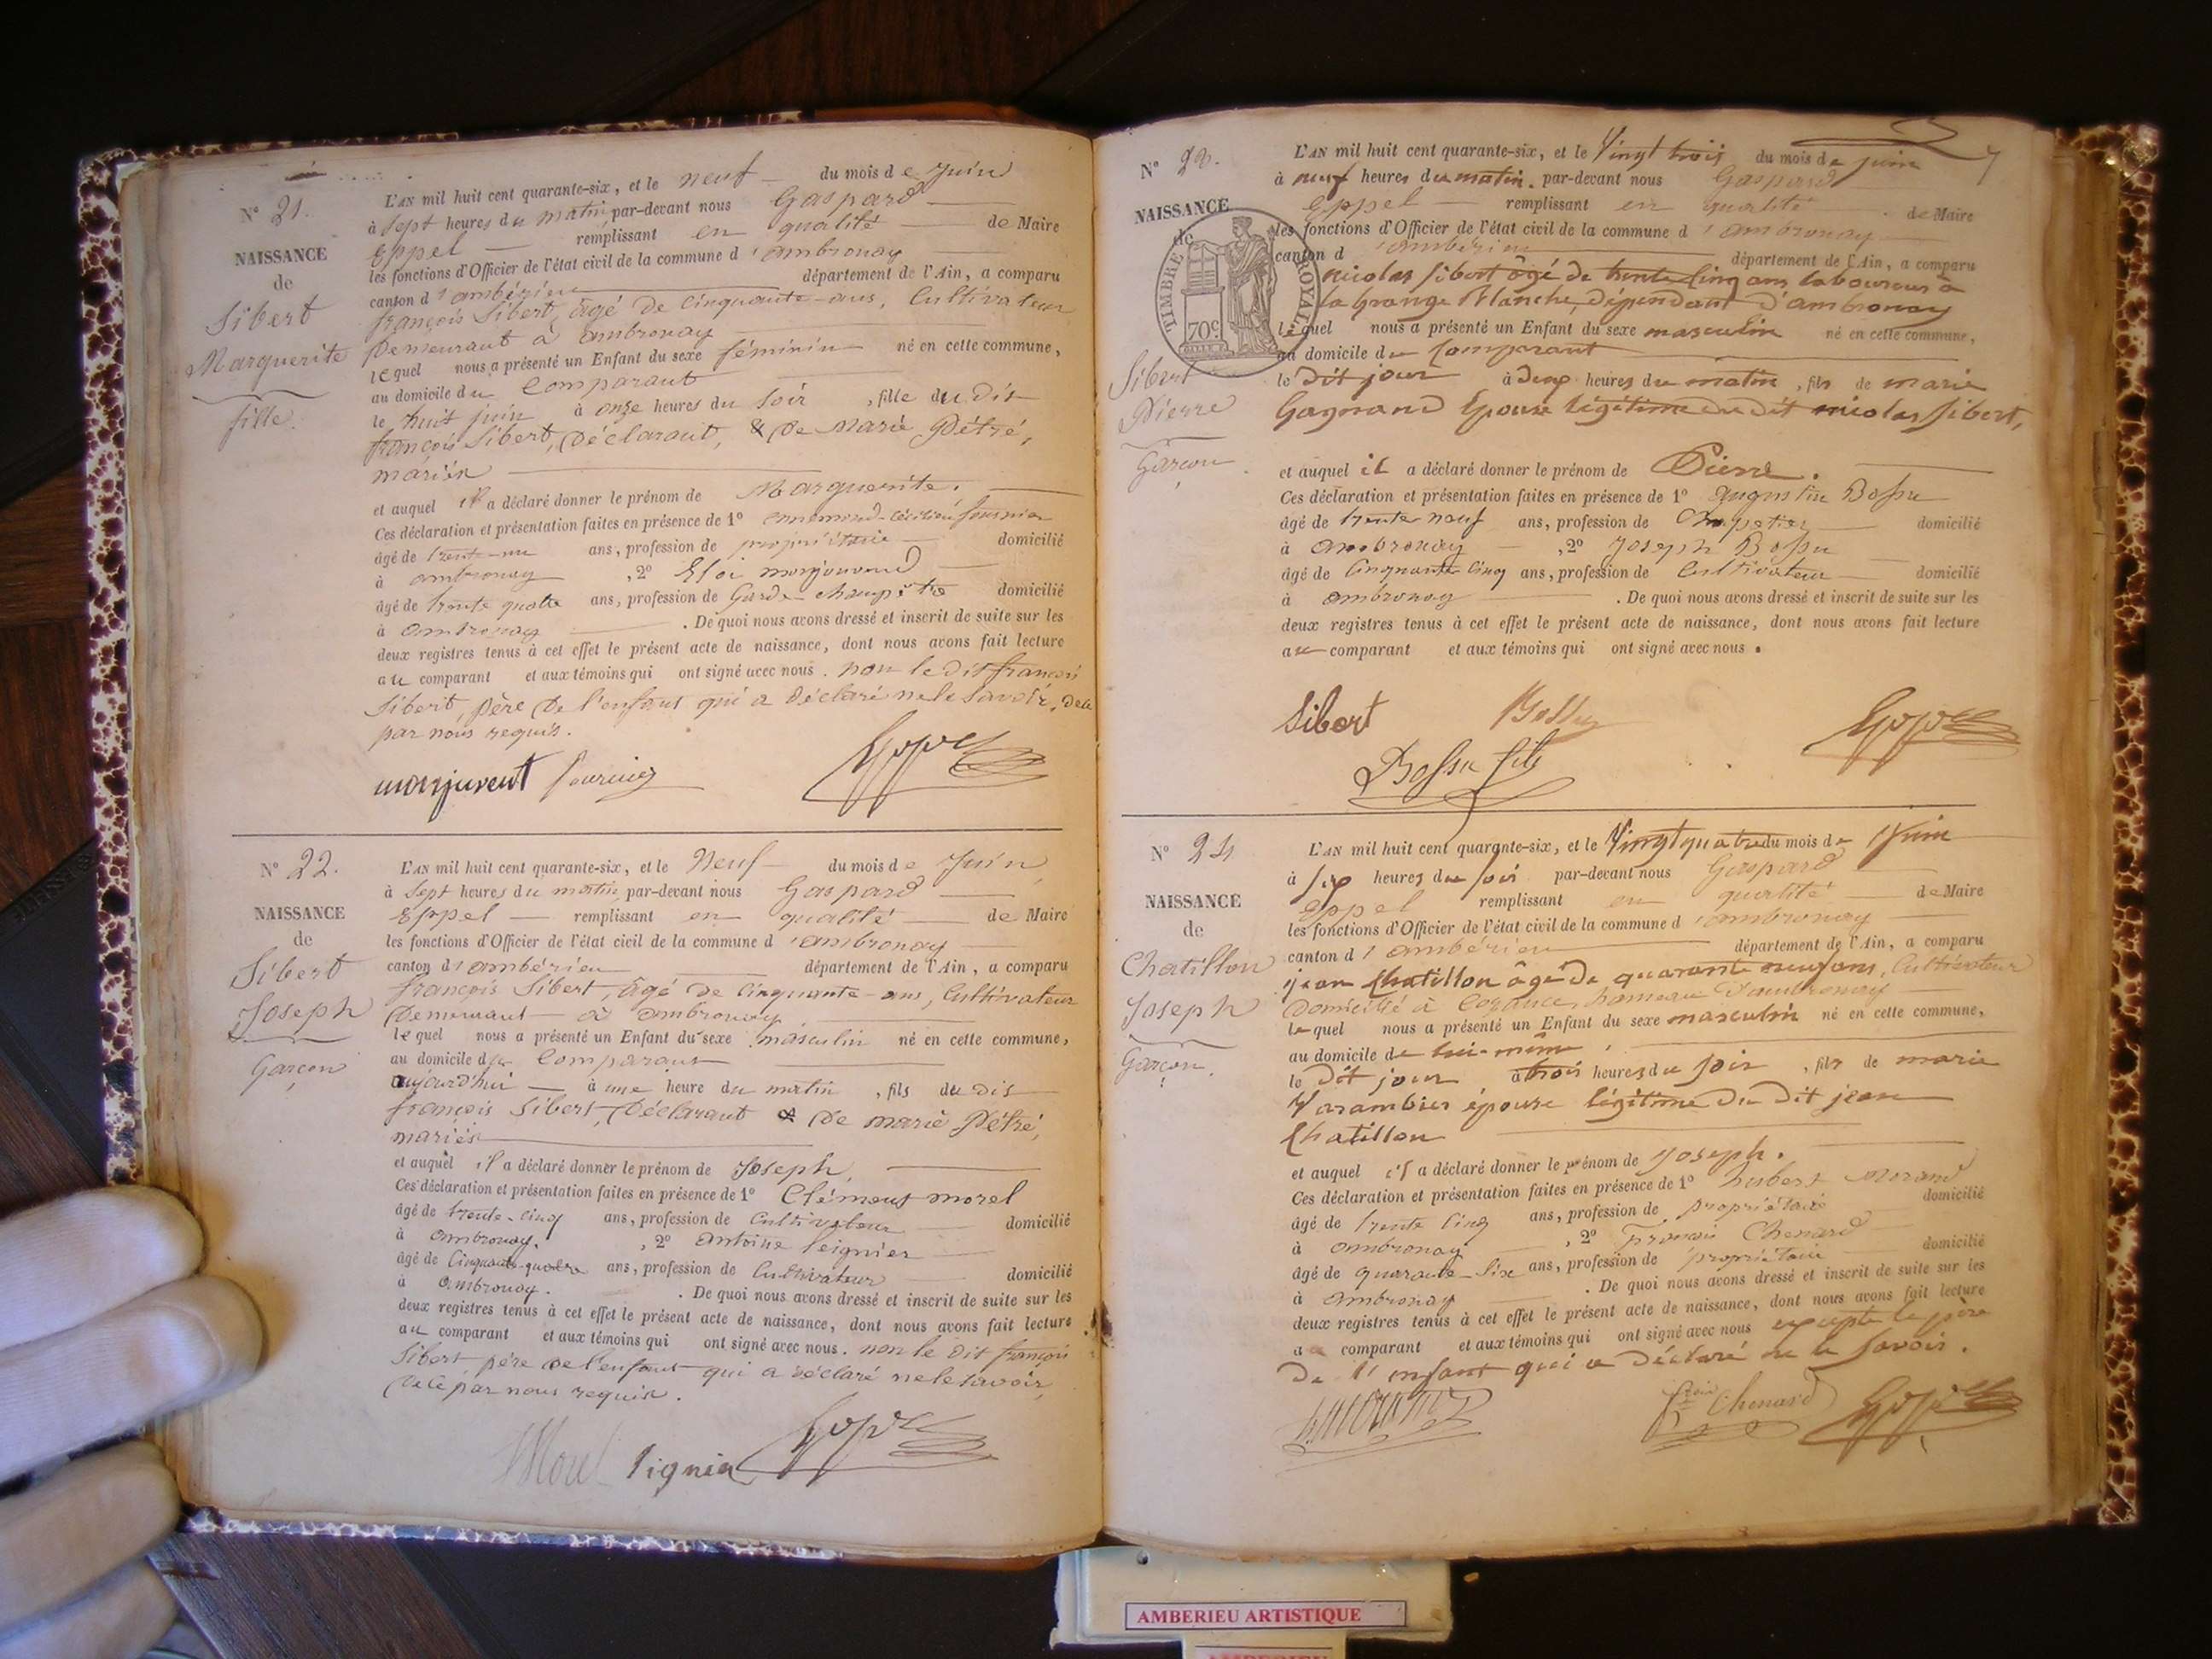 N° 21.
NAISSANCE
de
Sibert
Marguerite
fille.
L'AN mil huit cent quarante-six, et le neuf du mois de Juin
à sept heures du matin, par-devant nous Gaspard
Eppel remplissant en qualité de Maire
les fonctions d'Officier de l'état civil de la commune d'ambronay
canton d'ambérieu département de l'Ain, a comparu
françois Sibert, âgé de Cinquante-ans, Cultivateur
Demeurant à ambronay
lequel nous a présenté un Enfant du sexe féminin né en cette commune,
au domicile du Comparant
le huit juin à onze heures du soir, fille du dit
françois Sibert, Déclarant, & de Marie Pétré,
mariés
et auquel il a déclaré donner le prénom de Marguerite.
Ces déclaration et présentation faites en présence de 1° fournier
âgé de trente-un ans, profession de propriétaire domicilié
à ambronay, 2° Eloi monjouvent
âgé de trente quatre ans, profession de Garde-champêtre domicilié
à ambronay. De quoi nous avons dressé et inscrit de suite sur les
deux registres tenus à cet effet le présent acte de naissance, dont nous avons fait lecture
au comparant et aux témoins qui ont signé avec nous. non le dit françois
Sibert, père de l'enfant qui a déclaré ne le savoir, de ce
par nous requis.
monjuvent fournier Eppel
N° 22.
NAISSANCE
de
Sibert
Joseph
Garçon
L'AN mil huit cent quarante-six, et le Neuf du mois de Juin
à sept heures du matin, par-devant nous Gaspard
Eppel remplissant en qualité de Maire
les fonctions d'Officier de l'état civil de la commune d'ambronay
canton d'ambérieu département de l'Ain, a comparu
françois Sibert, âgé de Cinquante-ans, Cultivateur
Demeurant à ambronay
lequel nous a présenté un Enfant du sexe masculin né en cette commune,
au domicile du Comparant
aujourd'hui à une heure du matin, fils du dit
françois Sibert, Déclarant & de marie Pétré,
mariés
et auquel il a déclaré donner le prénom de Joseph,
Ces déclaration et présentation faites en présence de 1° Clément morel
âgé de trente-cinq ans, profession de Cultivateur domicilié
à ambronay, 2° antoine Leignier
âgé de Cinquante-quatre ans, profession de Cultivateur domicilié
à ambronay. De quoi nous avons dressé et inscrit de suite sur les
deux registres tenus à cet effet le présent acte de naissance, dont nous avons fait lecture
au comparant et aux témoins qui ont signé avec nous. non le dit françois
Sibert, père de l'enfant qui a déclaré ne le savoir,
de ce par nous requis.
Morel Lignier Eppel
N° 23.
NAISSANCE
de
TIMBRE ROYAL
70c
Sibert
Pierre
Garçon
7
L'AN mil huit cent quarante-six, et le Vingt trois du mois de juin
à neuf heures du matin, par-devant nous Gaspard
Eppel remplissant en qualité de Maire
les fonctions d'Officier de l'état civil de la commune d'ambronay
canton d'ambérieu département de l'Ain, a comparu
nicolas Sibert âgé de trente cinq ans laboureur à
la Grange Blanche, dépendant d'ambronay
lequel nous a présenté un Enfant du sexe masculin né en cette commune,
au domicile du Comparant
le dit jour à deux heures du matin, fils de marie
Gagnand Epouse légitime du dit nicolas Sibert,
et auquel il a déclaré donner le prénom de Pierre.
Ces déclaration et présentation faites en présence de 1° augustin Bossu
âgé de trente neuf ans, profession de domicilié
à ambronay, 2° Joseph Bossu
âgé de Cinquante Cinq ans, profession de Cultivateur domicilié
à ambronay. De quoi nous avons dressé et inscrit de suite sur les
deux registres tenus à cet effet le présent acte de naissance, dont nous avons fait lecture
au comparant et aux témoins qui ont signé avec nous.
Sibert Bossu Eppel
Bossu fils
N° 24
NAISSANCE
de
Chatillon
Joseph
Garçon.
L'AN mil huit cent quarante-six, et le Vingt quatre du mois de Juin
à six heures du soir par-devant nous Gaspard
Eppel remplissant en qualité de Maire
les fonctions d'Officier de l'état civil de la commune d'ambronay
canton d'ambérieu département de l'Ain, a comparu
jean Chatillon âgé de quarante neuf ans, Cultivateur
Domicilié à Cozance, hameau d'ambronay
lequel nous a présenté un Enfant du sexe masculin né en cette commune,
au domicile de lui-même,
le Dit jour à trois heures du soir, fils de marie
Varambier épouse légitime Du Dit jean
Chatillon
et auquel il a déclaré donner le prénom de Joseph.
Ces déclaration et présentation faites en présence de 1° hubert morand
âgé de trente Cinq ans, profession de propriétaire domicilié
à ambronay, 2° françois Chenard
âgé de quarante-six ans, profession de propriétaire domicilié
à ambronay. De quoi nous avons dressé et inscrit de suite sur les
deux registres tenus à cet effet le présent acte de naissance, dont nous avons fait lecture
au comparant et aux témoins qui ont signé avec nous excepté le père
De l'enfant qui a Déclaré ne le savoir.
Chenard Eppel
AMBERIEU ARTISTIQUE